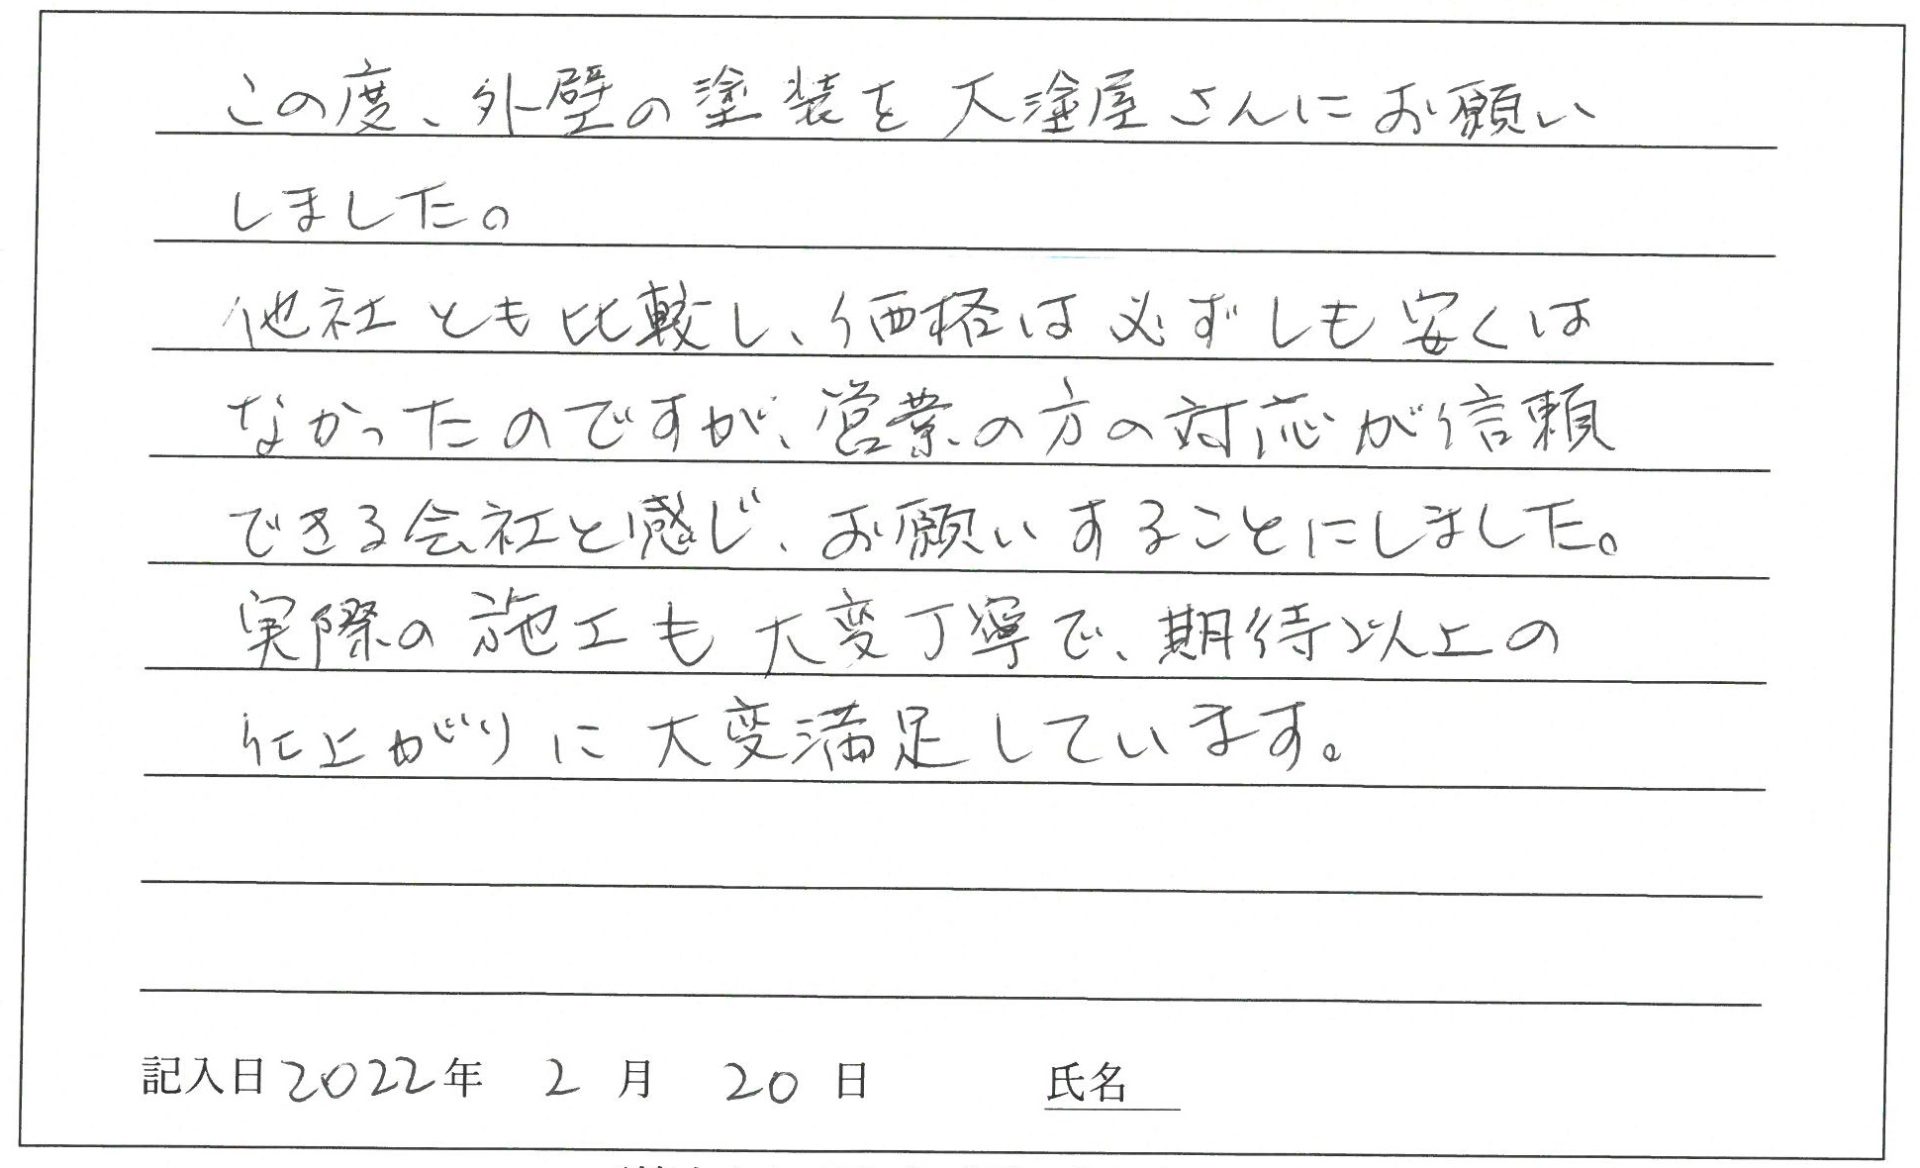 この度、外壁の塗装を大塗屋さんにお願い
しました。
他社とも比較し、価格は必ずしも安くは
なかったのですが、営業の方の対応が信頼
できる会社と感じ、お願いすることにしました。
実際の施工も大変丁寧で、期待以上の
仕上がりに大変満足しています。
記入日 2022年 2月 20日 氏名